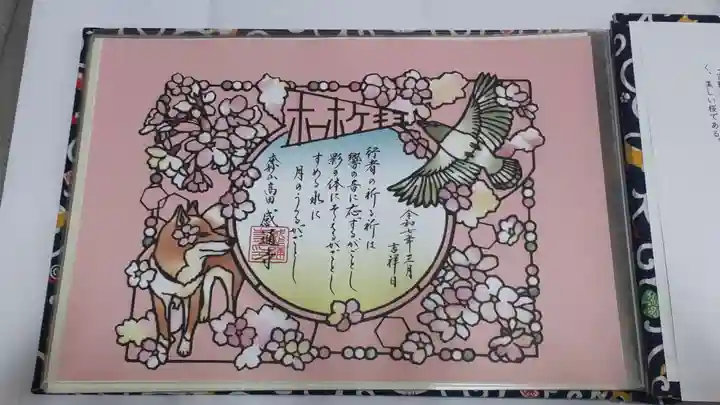 ホーホケキョ
令和七年三月
吉祥日
行者の祈る祈は
響の音に応ずるがごとし
影の体にそえるがごとし
すめる水に
月のうつるがごとし
高田
感通寺
く、美しい桜である。